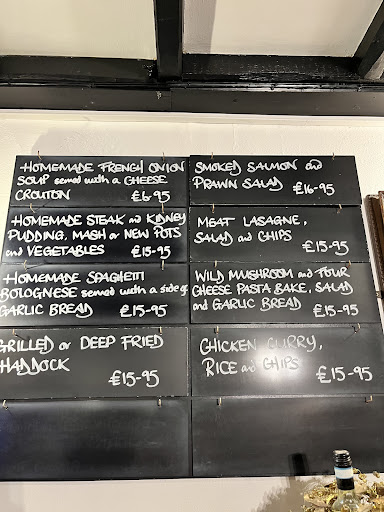 HOMEMADE FRENCH ONION
SOUP served with a CHEESE
CROUTON £6-95
HOMEMADE STEAK and KIDNEY
PUDDING, MASH or NEW POTS
and VEGETABLES £15-95
HOMEMADE SPAGHETTI
BOLOGNESE served with a side of
GARLIC BREAD £15-95
GRILLED or DEEP FRIED
HADDOCK
£15-95
SMOKED SALMON and
PRAWN SALAD £16-95
MEAT LASAGNE,
SALAD and CHIPS
£15-95
WILD MUSHROOM and FOUR
CHEESE PASTA BAKE, SALAD
and GARLIC BREAD £15-95
CHICKEN CURRY,
RICE and CHIPS
£15-95